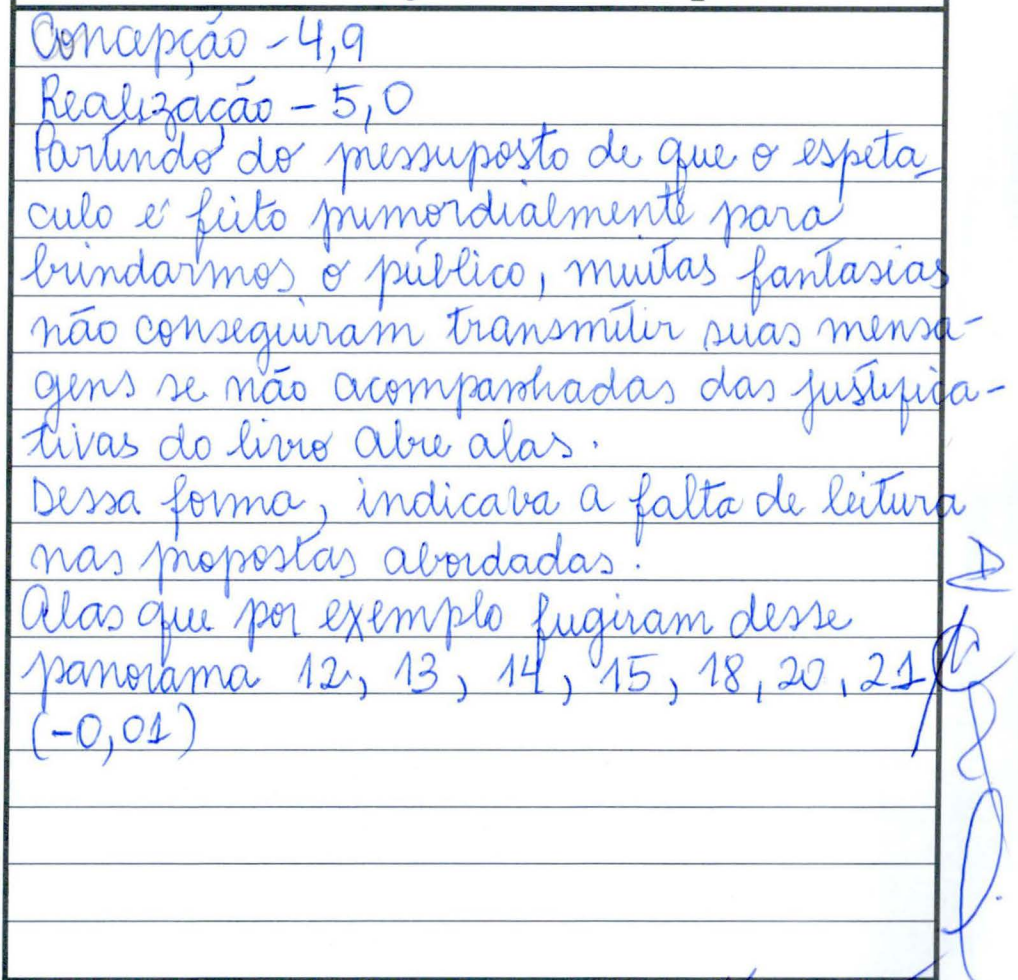 Concepção - 4,9
Realização - 5,0
Partindo do pressuposto de que o espeta
culo é feito primordialmente para
brindarmos o público, muitas fantasias
não conseguiram transmitir suas mensa-
gens se não acompanhadas das justifica-
tivas do livro abre alas.
Dessa forma, indicava a falta de leitura
nas propostas abordadas.
Alas que por exemplo fugiram desse
panorama 12, 13, 14, 15, 18, 20, 21
(-0,01)